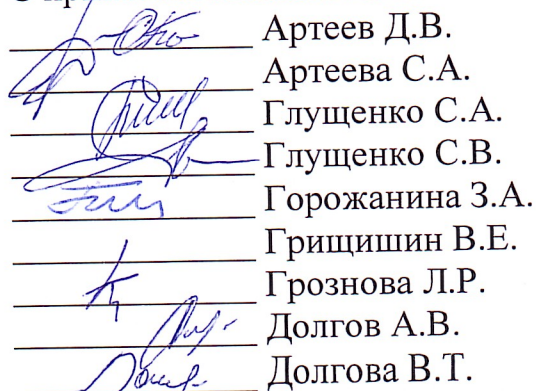 Артеев Д.В.
Артеева С.А.
Глущенко С.А.
Глущенко С.В.
Горожанина З.А.
Грищишин В.Е.
Грознова Л.Р.
Долгов А.В.
Долгова В.Т.